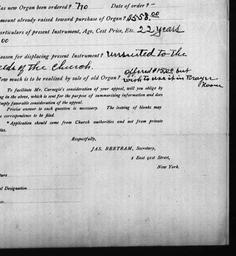 as new Organ been ordered? no Date of order? -
mount already raised toward purchase of Organ? $558.00
articulars of present Instrument, Age, Cost Price, Etc. 22 years
00
eason for displacing present Instrument? unsuited to the
eds of the Church.
ow much is to be realized by sale of old Organ? offered $ but
wish to use it in Prayer
Room
To facilitate Mr. Carnegie's consideration of your appeal, will you oblige by
ing in the above, which is sent for the purpose of summarizing information and does
imply favorable consideration of the appeal.
Precise answer to each question is necessary. The leaving of blanks may
delay.
* Application should come from Church authorities and not from private
ties.
Respectfully,
JAS. BERTRAM, Secretary,
2 East 91st Street,
New York.
al Designation.